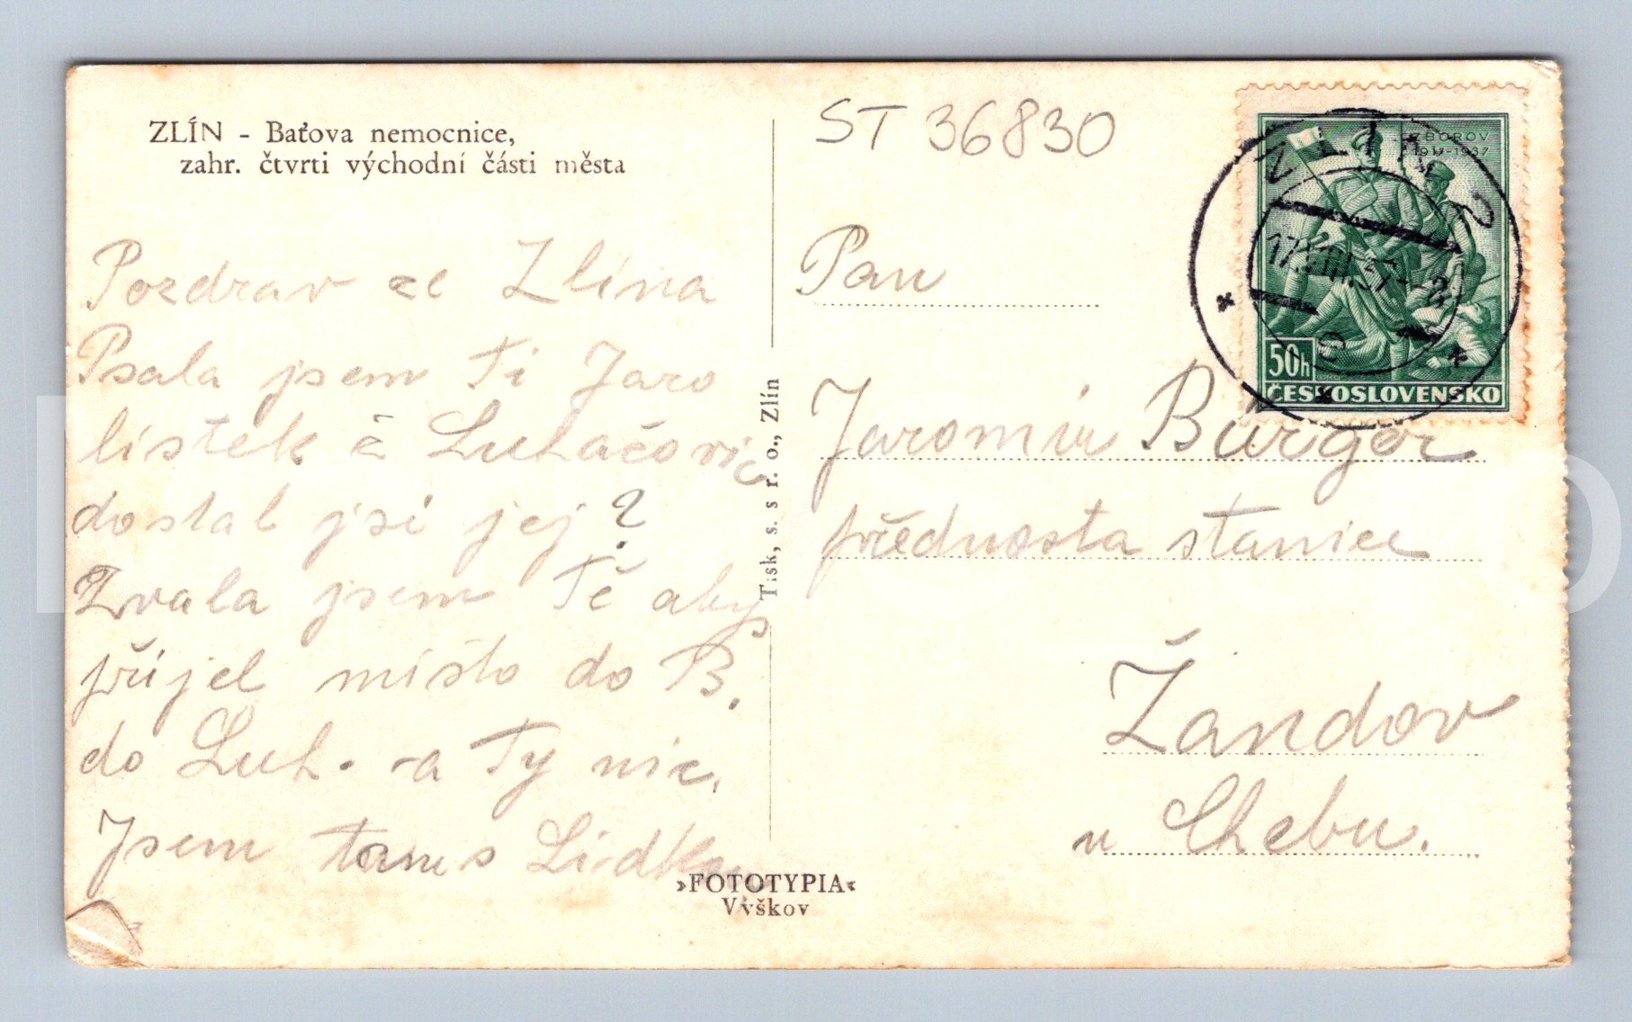 ZLÍN - Baťova nemocnice,
zahr. čtvrti východní části města
Pozdrav ze Zlína
Psala jsem Ti Jaro
lístek z Luhačovic
dostal jsi jej?
Zvala jsem Tě abys
přijel místo do B.
do Luh. - a Ty nic.
Jsem tam s Lidkou
Tisk, s. s r. o., Zlín
»FOTOTYPIA«
Vyškov
ST 36830
ZBOROV
1917-1937
50h
ČESKOSLOVENSKO
ZLÍN 2
17.VIII.37
Pan
Jaromír Burger
přednosta stanice
Žandov
u Chebu.